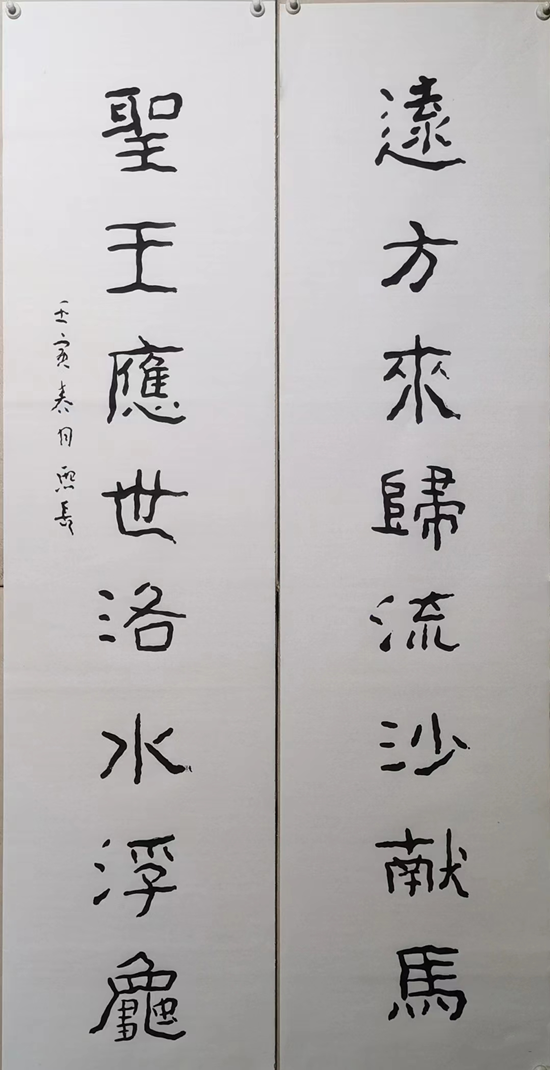 遠方來歸流沙献馬
聖王應世洛水浮龜
壬寅春月熙長